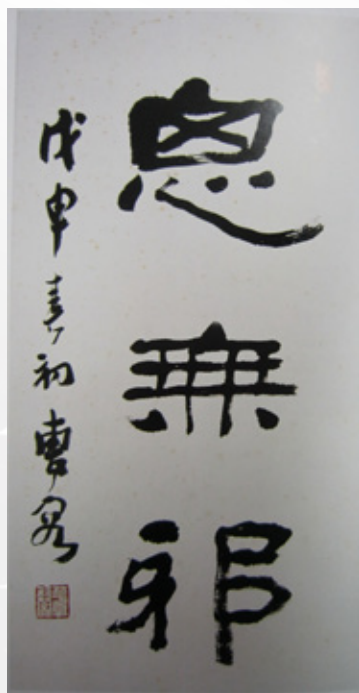 思無邪
戊申春初曹容